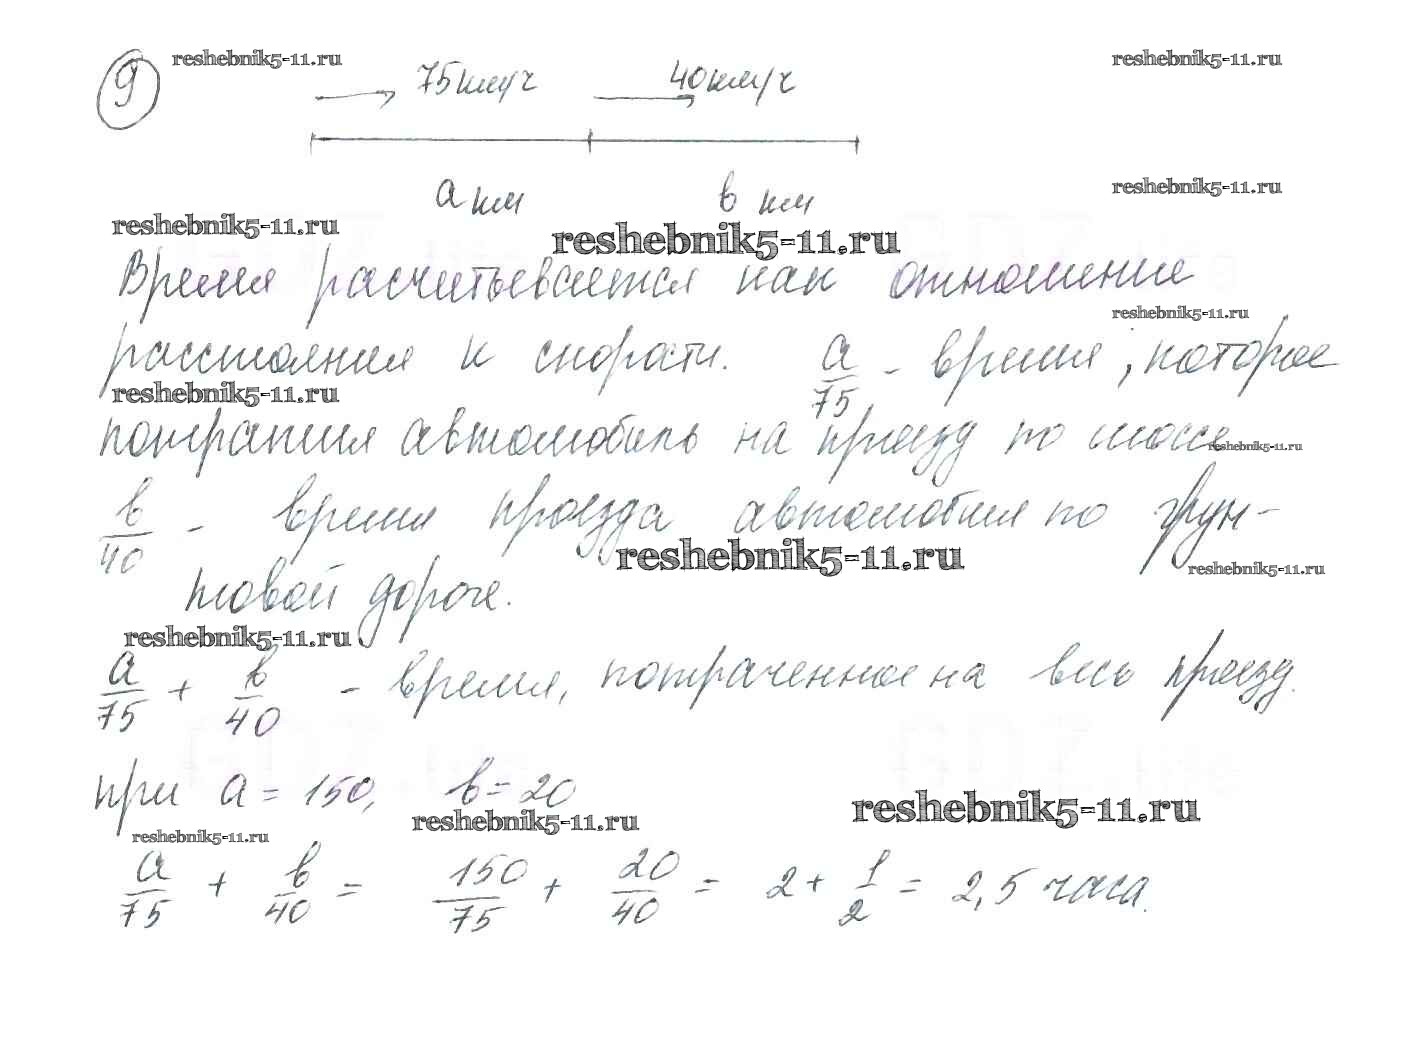 reshebnik5-11.ru reshebnik5-11.ru
9 75 км/ч 40 км/ч
а км в км reshebnik5-11.ru
reshebnik5-11.ru reshebnik5-11.ru
Время расчитывается как отношение
reshebnik5-11.ru
расстояния к скорости. а/75 - время, которое
reshebnik5-11.ru
потратил автомобиль на проезд по шоссе
reshebnik5-11.ru
в/40 - время проезда автомобиля по грун-
reshebnik5-11.ru reshebnik5-11.ru
товой дороге.
reshebnik5-11.ru
а/75 + в/40 - время, потраченное на весь проезд.
при а = 150, в = 20
reshebnik5-11.ru reshebnik5-11.ru reshebnik5-11.ru
а/75 + в/40 = 150/75 + 20/40 = 2 + 1/2 = 2,5 часа.